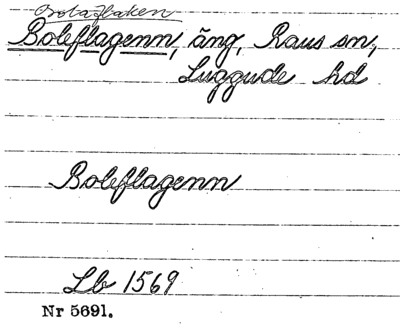 Boleflagenn, äng, Raus sn,
Luggude hd
Boleflagenn
Lb 1569
Nr 5691.